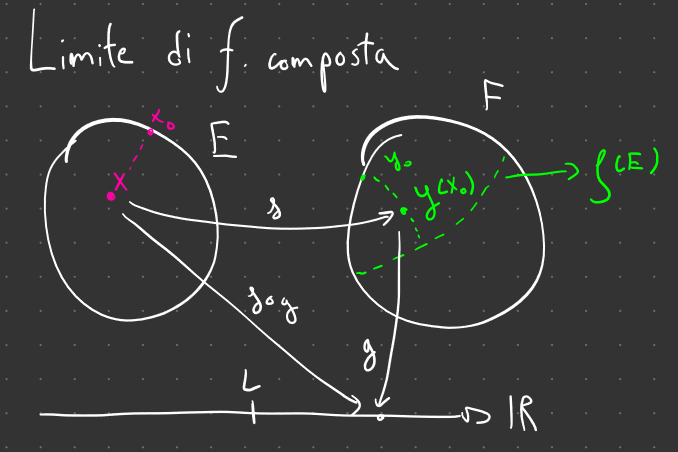 Limite di f. composta
x₀
E
F
X
y₀
y(x₀)
f(E)
f
f∘g
g
L
IR